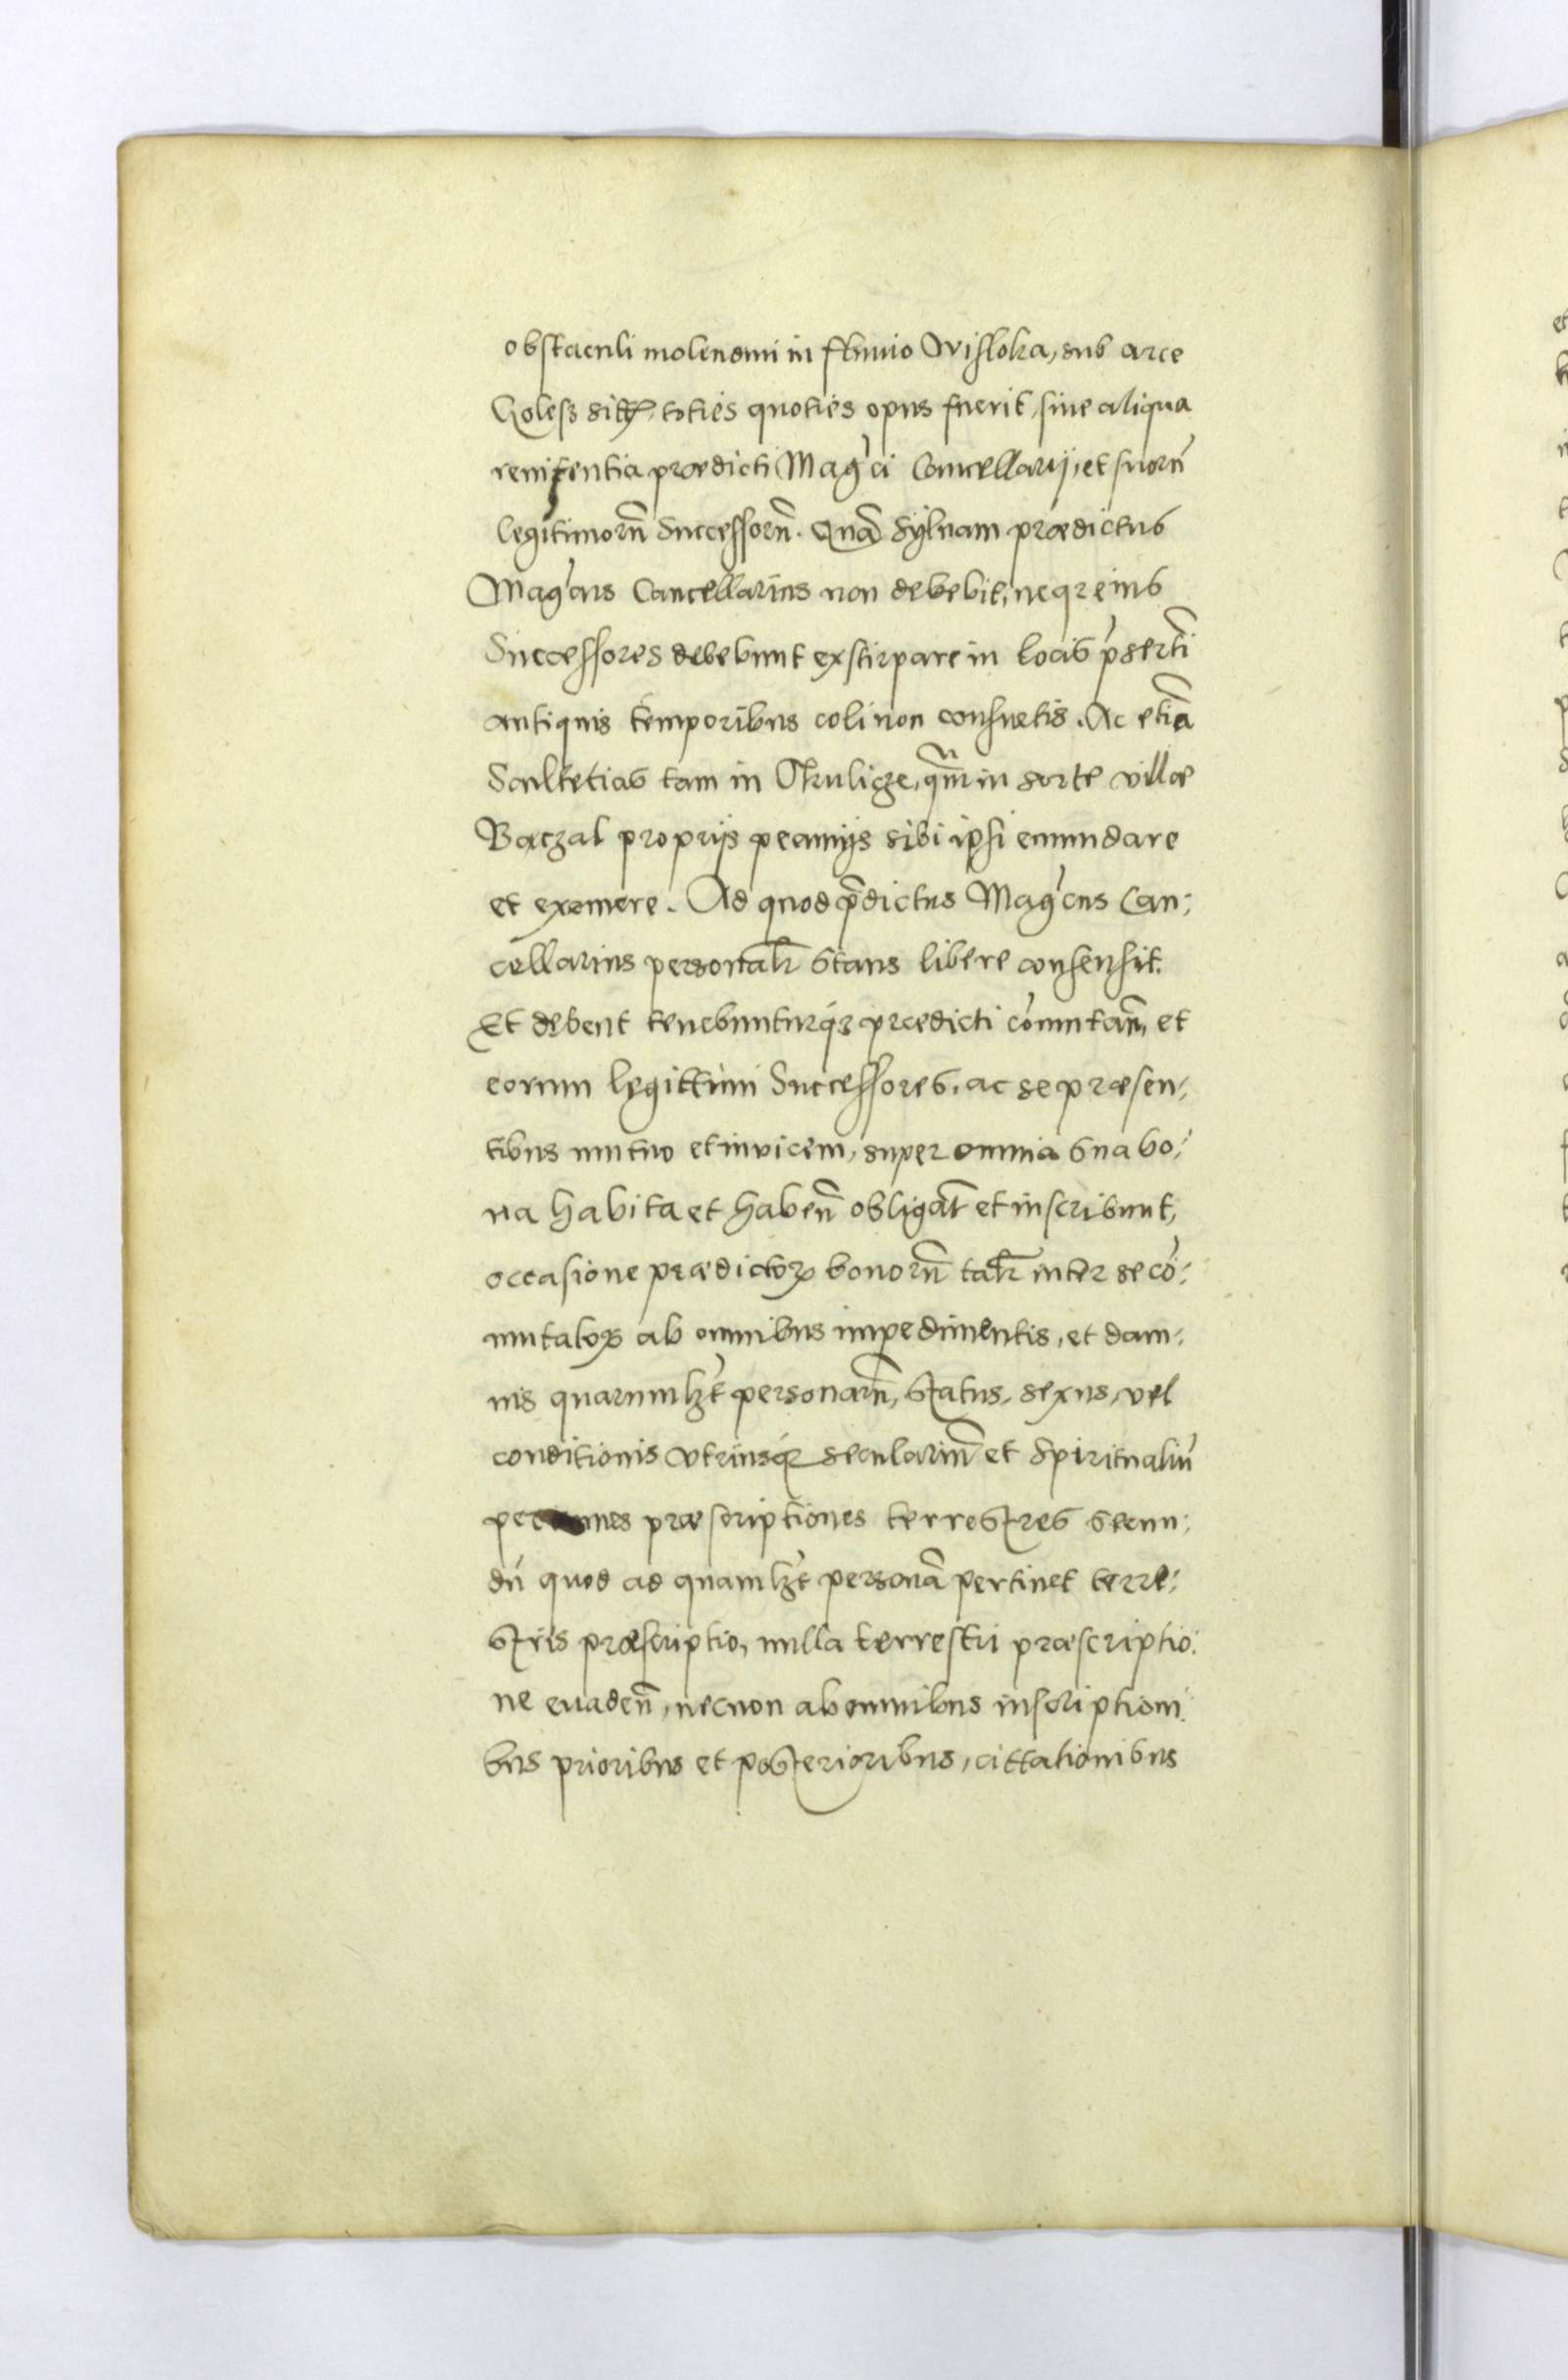 obstaculi molendini in fluuio Wisloka, sub arce
Golesz sitt, toties quoties opus fuerit, sine aliqua
renitentia prædicti Magci Cancellarij, et suorũ
legitimorũ Successorũ. Quã Syluam prædictus
Magcus Cancellarius non debebit, neq3 eius
Successores debebunt exstirpare in locis p̃sertĩ
antiquis temporibus coli non consuetis. Ac etiã
Scultetias tam in Okulicze, qm̃ in sorte villæ
Baczal proprijs pecunijs sibi ipsi emundare
et eximere. Ad quod p̃dictus Magcus Can:
cellarius personalr̃ stans libere consensit.
Et debent tenebunturq3 prædicti cõmutañ, et
eorum legittimi Successores, ac se præsen:
tibus mutuo et inuicem, super omnia sua bo:
na habita et habeñ obligãt et inscribunt,
occasione prædictoꝝ bonorũ talr̃ inter se cõ:
mutatoꝝ ab omnibus impedimentis, et dam:
nis quarumlz̃t personarũ, status, sexus, vel
conditionis vtriusq3 seculariũ et Spiritualiũ
per omnes præscriptiones terrestres secun:
dũ quod ad quamlz̃t personã pertinet terre:
stris præscriptio, nulla terrestri præscriptio:
ne euadeñ, necnon ab omnibus inscriptioni:
bus prioribus et posterioribus, cittationibus